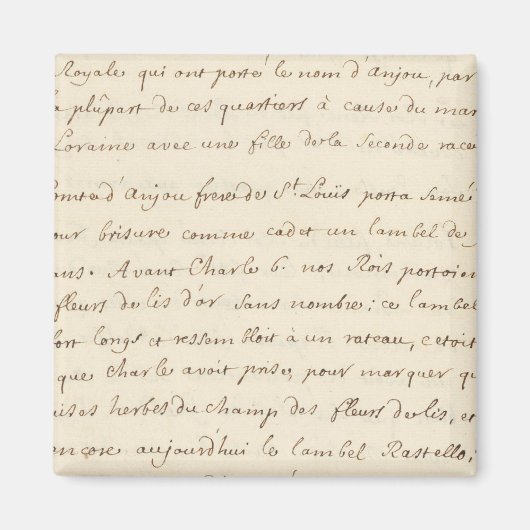 Royale qui ont porté le nom d'Anjou, par
la plûpart de ces quartiers à cause du mar
Loraine avec une fille de la seconde race
omte d'Anjou frere de St. Loüis porta semé
our brisure comme cadet un lambel de
ans. Avant Charle 6. nos Rois portoien
fleurs de lis d'or sans nombre; ce lambel
fort longs et ressembloit à un rateau, c etoit
que Charle avoit prise, pour marquer qu
uises herbes du champ des fleurs de lis, et
encore aujourd'hui le lambel Rastello;